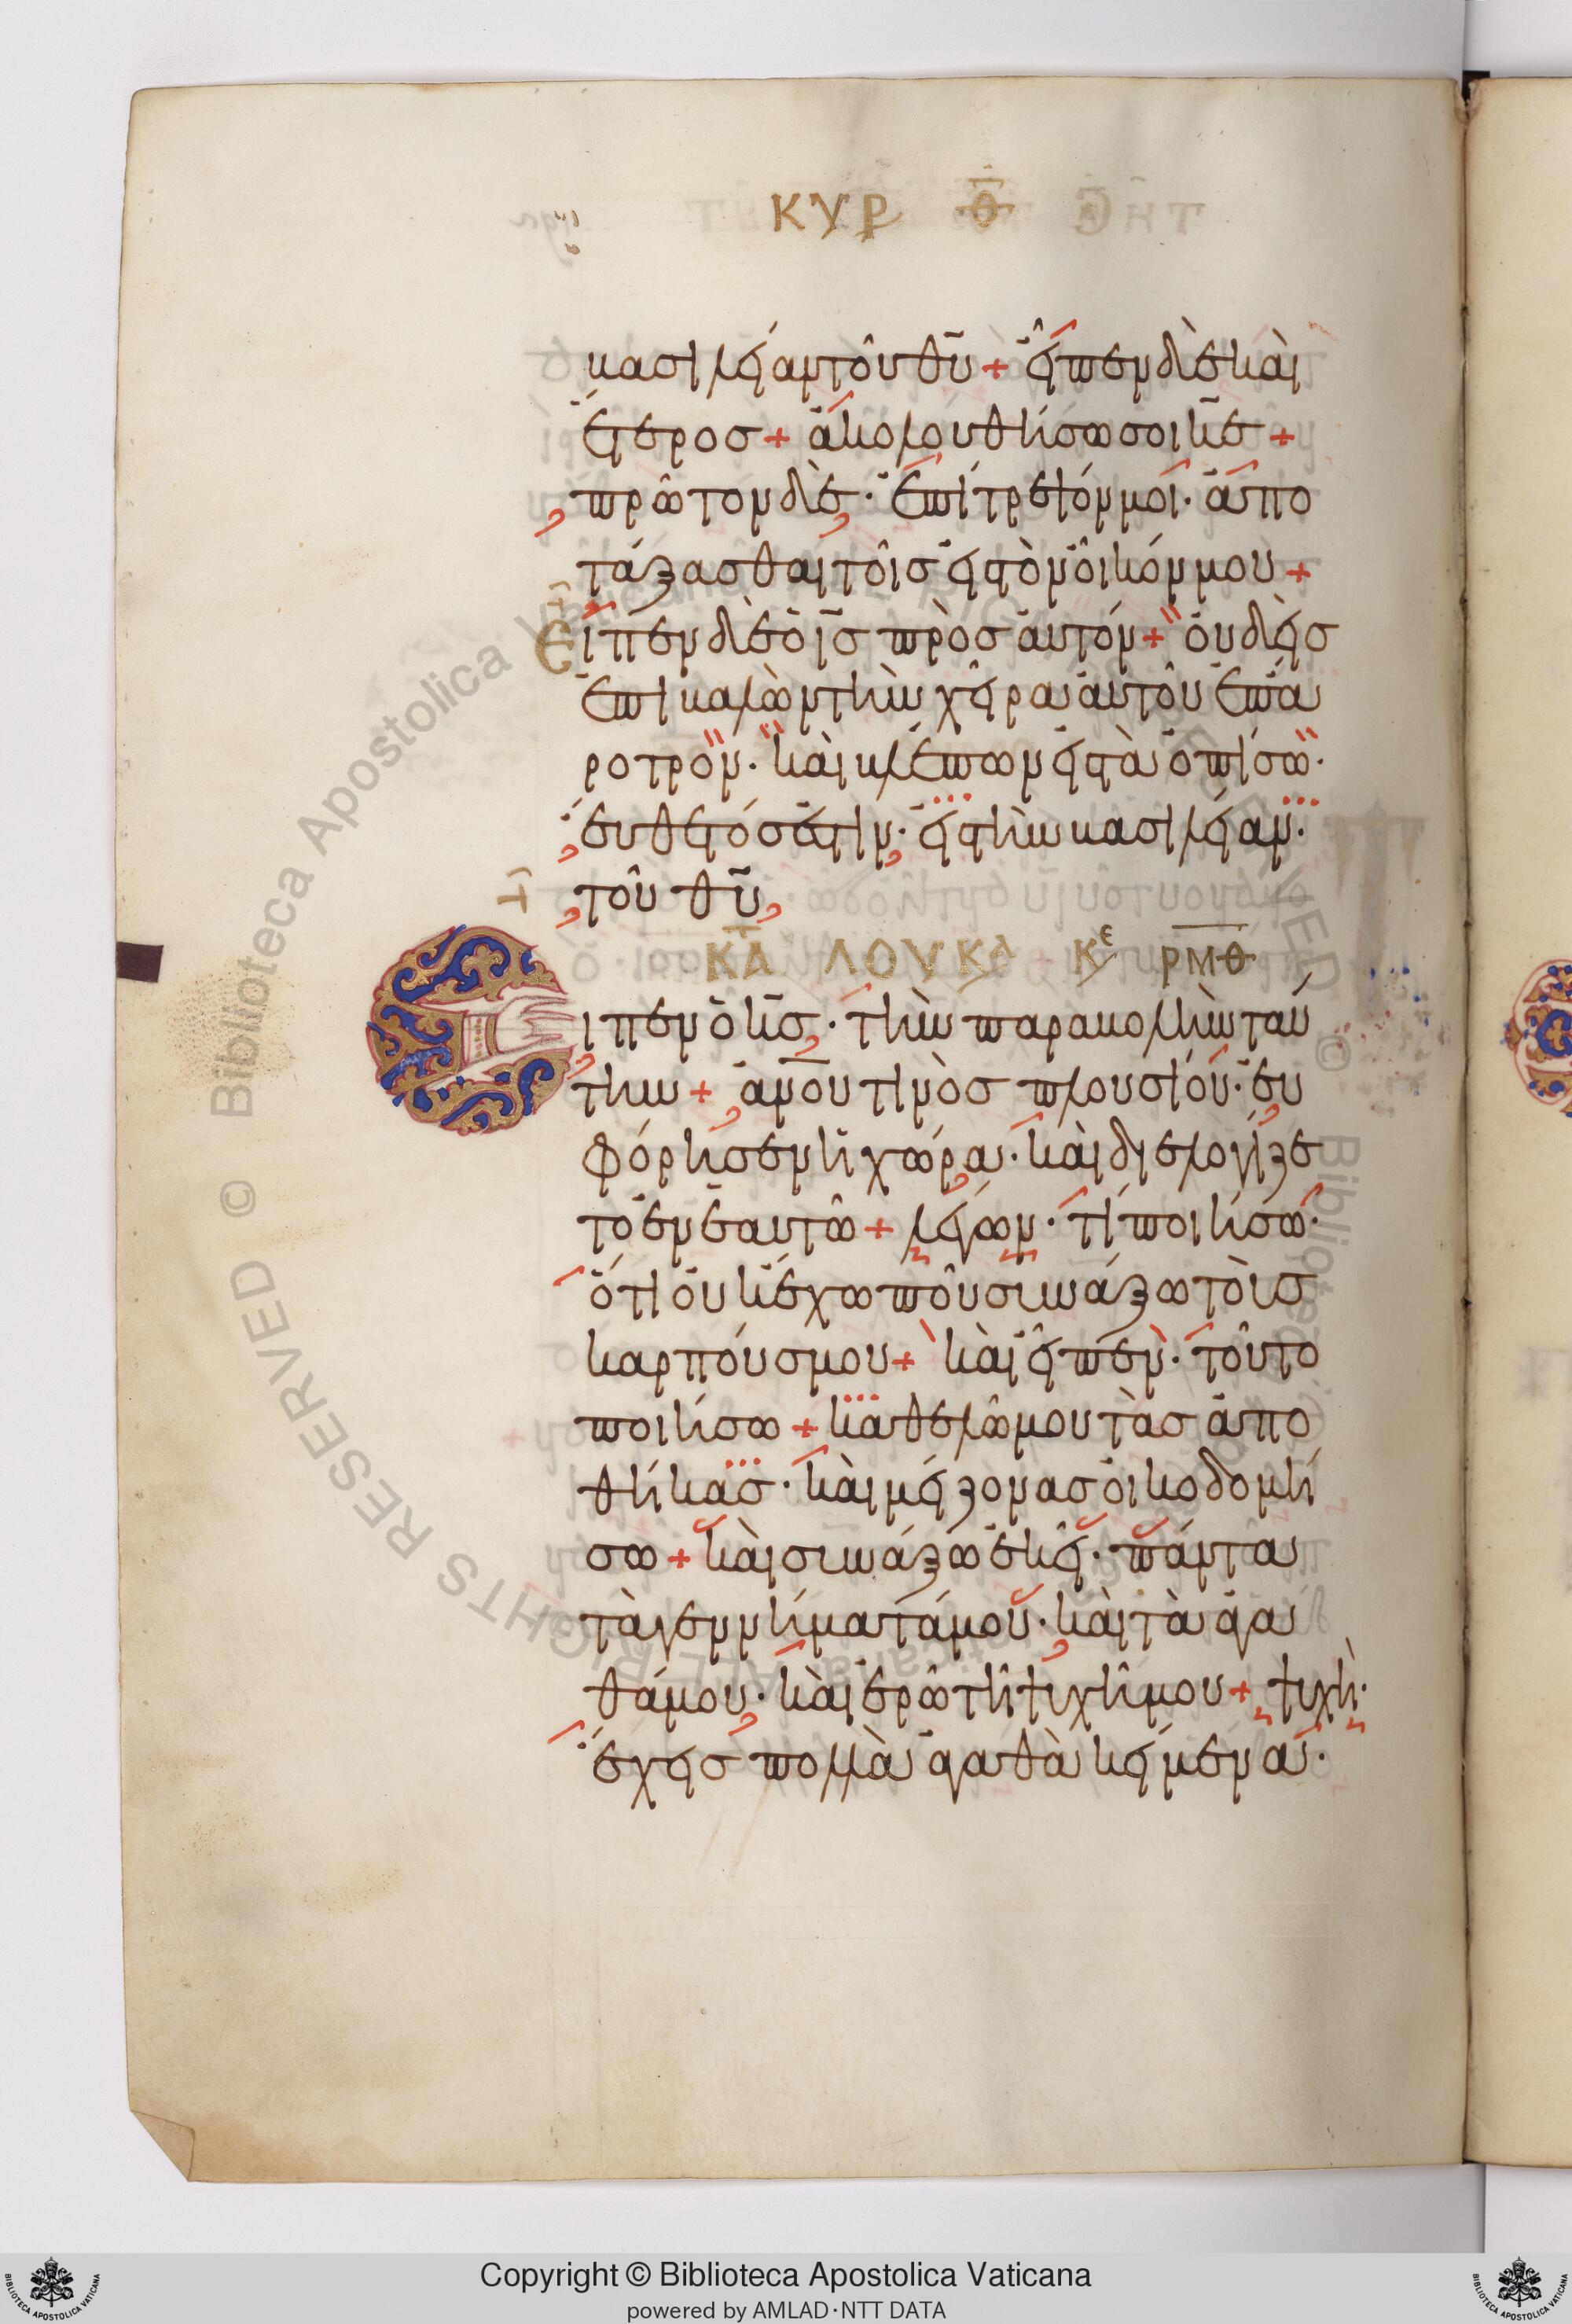 ΚΥΡ Θ
βασιλείαν τοῦ θυ + εἶπεν δὲ καὶ
ἕτερος + ἀκολουθήσω σοι κε +
πρῶτον δὲ · ἐπίτρεψόν μοι · ἀπο
τάξασθαι τοῖς εἰς τὸν οἶκόν μου +
Εἶπεν δὲ ὁ ις πρὸς αὐτόν + οὐδεὶς
ἐπιβαλὼν τὴν χεῖρα αὐτοῦ ἐπ' ἄ
ροτρον · καὶ βλέπων εἰς τὰ ὀπίσω ·
εὔθετός ἐστιν · εἰς τὴν βασιλείαν ·
τοῦ θυ
ΚΑΤΑ ΛΟΥΚΑ Κε ΡΜΘ
Εἶπεν ὁ κς · τὴν παραβολὴν ταύ
την + ανου τινὸς πλουσίου · εὐ
φόρησεν ἡ χώρα · καὶ διελογίζε
το ἐν ἑαυτῶ + λέγων · τί ποιήσω ·
ὅτι οὐκ ἔχω ποῦ συνάξω τοὺς
καρπούς μου + καὶ εἶπεν · τοῦτο
ποιήσω + καθελῶ μου τὰς ἀπο
θήκας · καὶ μείζονας οἰκοδομή
σω + καὶ συνάξω ἐκεῖ · πάντα
τὰ γεννήματά μου · καὶ τὰ ἀγα
θά μου · καὶ ἐρῶ τῆ ψυχῆ μου + ψυχὴ ·
ἔχεις πολλὰ ἀγαθὰ κείμενα ·
© Biblioteca Apostolica Vaticana ALL RIGHTS RESERVED
Copyright © Biblioteca Apostolica Vaticana
powered by AMLAD·NTT DATA
BIBLIOTECA APOSTOLICA VATICANA
BIBLIOTECA APOSTOLICA VATICANA